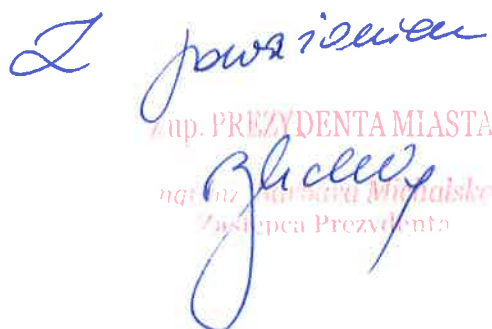 Z poważaniem
Z up. PREZYDENTA MIASTA
mgr inż. Barbara Michalska
Zastępca Prezydenta